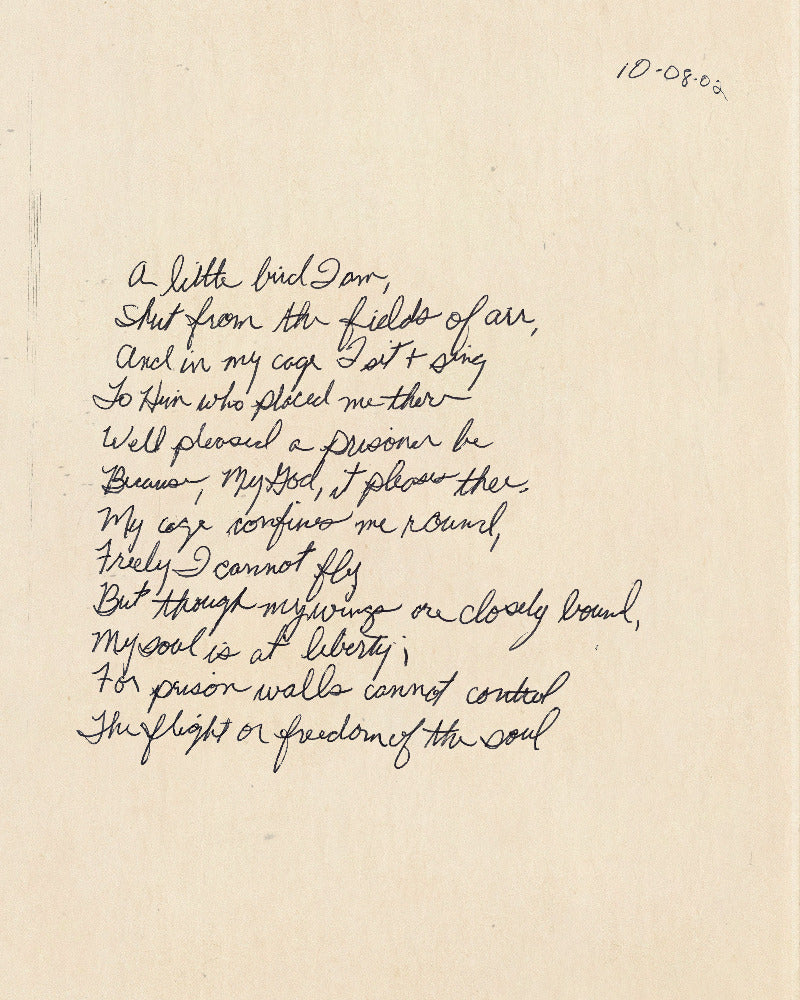 10-08-02
A little bird I am,
Shut from the fields of air,
And in my cage I sit + sing
To Him who placed me there
Well pleased a prisoner be
Because, My God, it pleases thee.
My cage confines me round,
Freely I cannot fly
But though my wings are closely bound,
My soul is at liberty;
For prison walls cannot control
The flight or freedom of the soul